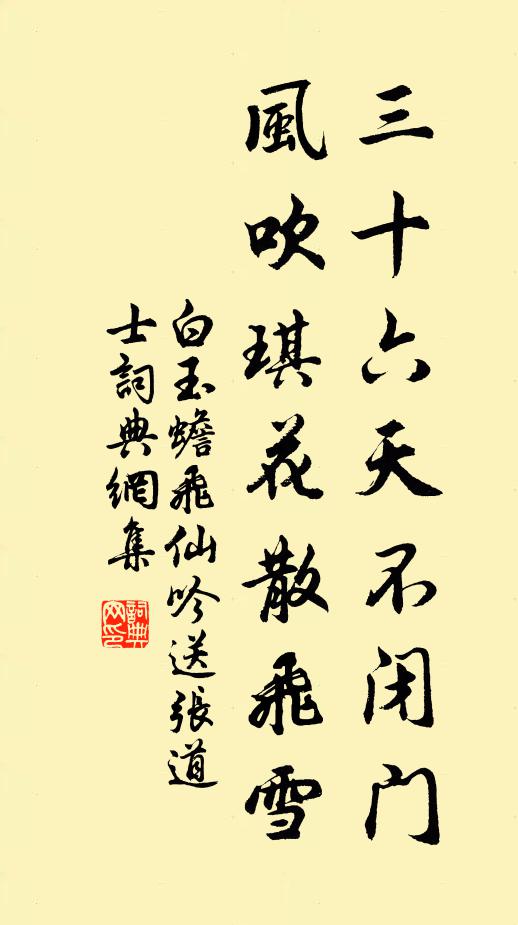 三十六天不闭门
風吹琪花散飛雪
白玉蟾飛仙吟送張道
士詞典網集
詞典
网印